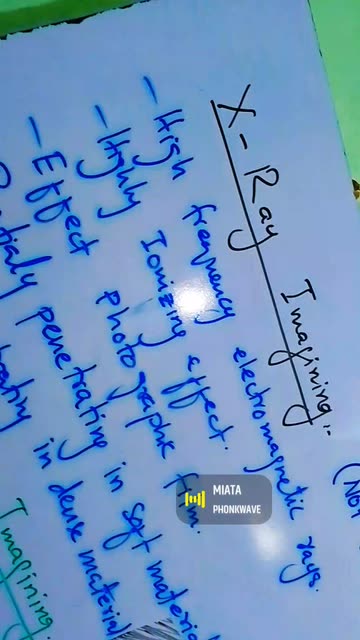 X-Ray Imagining:-
- High frequency electromagnetic rays.
- Highly Ionizing effect.
- Effect photographic film.
penetrating in soft material
in dense material
Imagining:
MIATA
PHONKWAVE